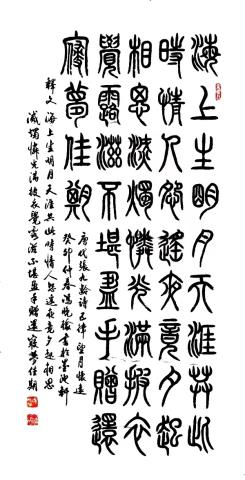 海上生明月天涯共此
時情人怨遙夜竟夕起
相思滅燭憐光滿披衣
覺露滋不堪盈手贈還
寢夢佳期
唐代張九齡詩五律望月懷遠
癸卯仲春馮晚書於墨池軒
釋文海上生明月天涯共此時情人怨遙夜竟夕起相思
滅燭憐光滿披衣覺露滋不堪盈手贈還寢夢佳期